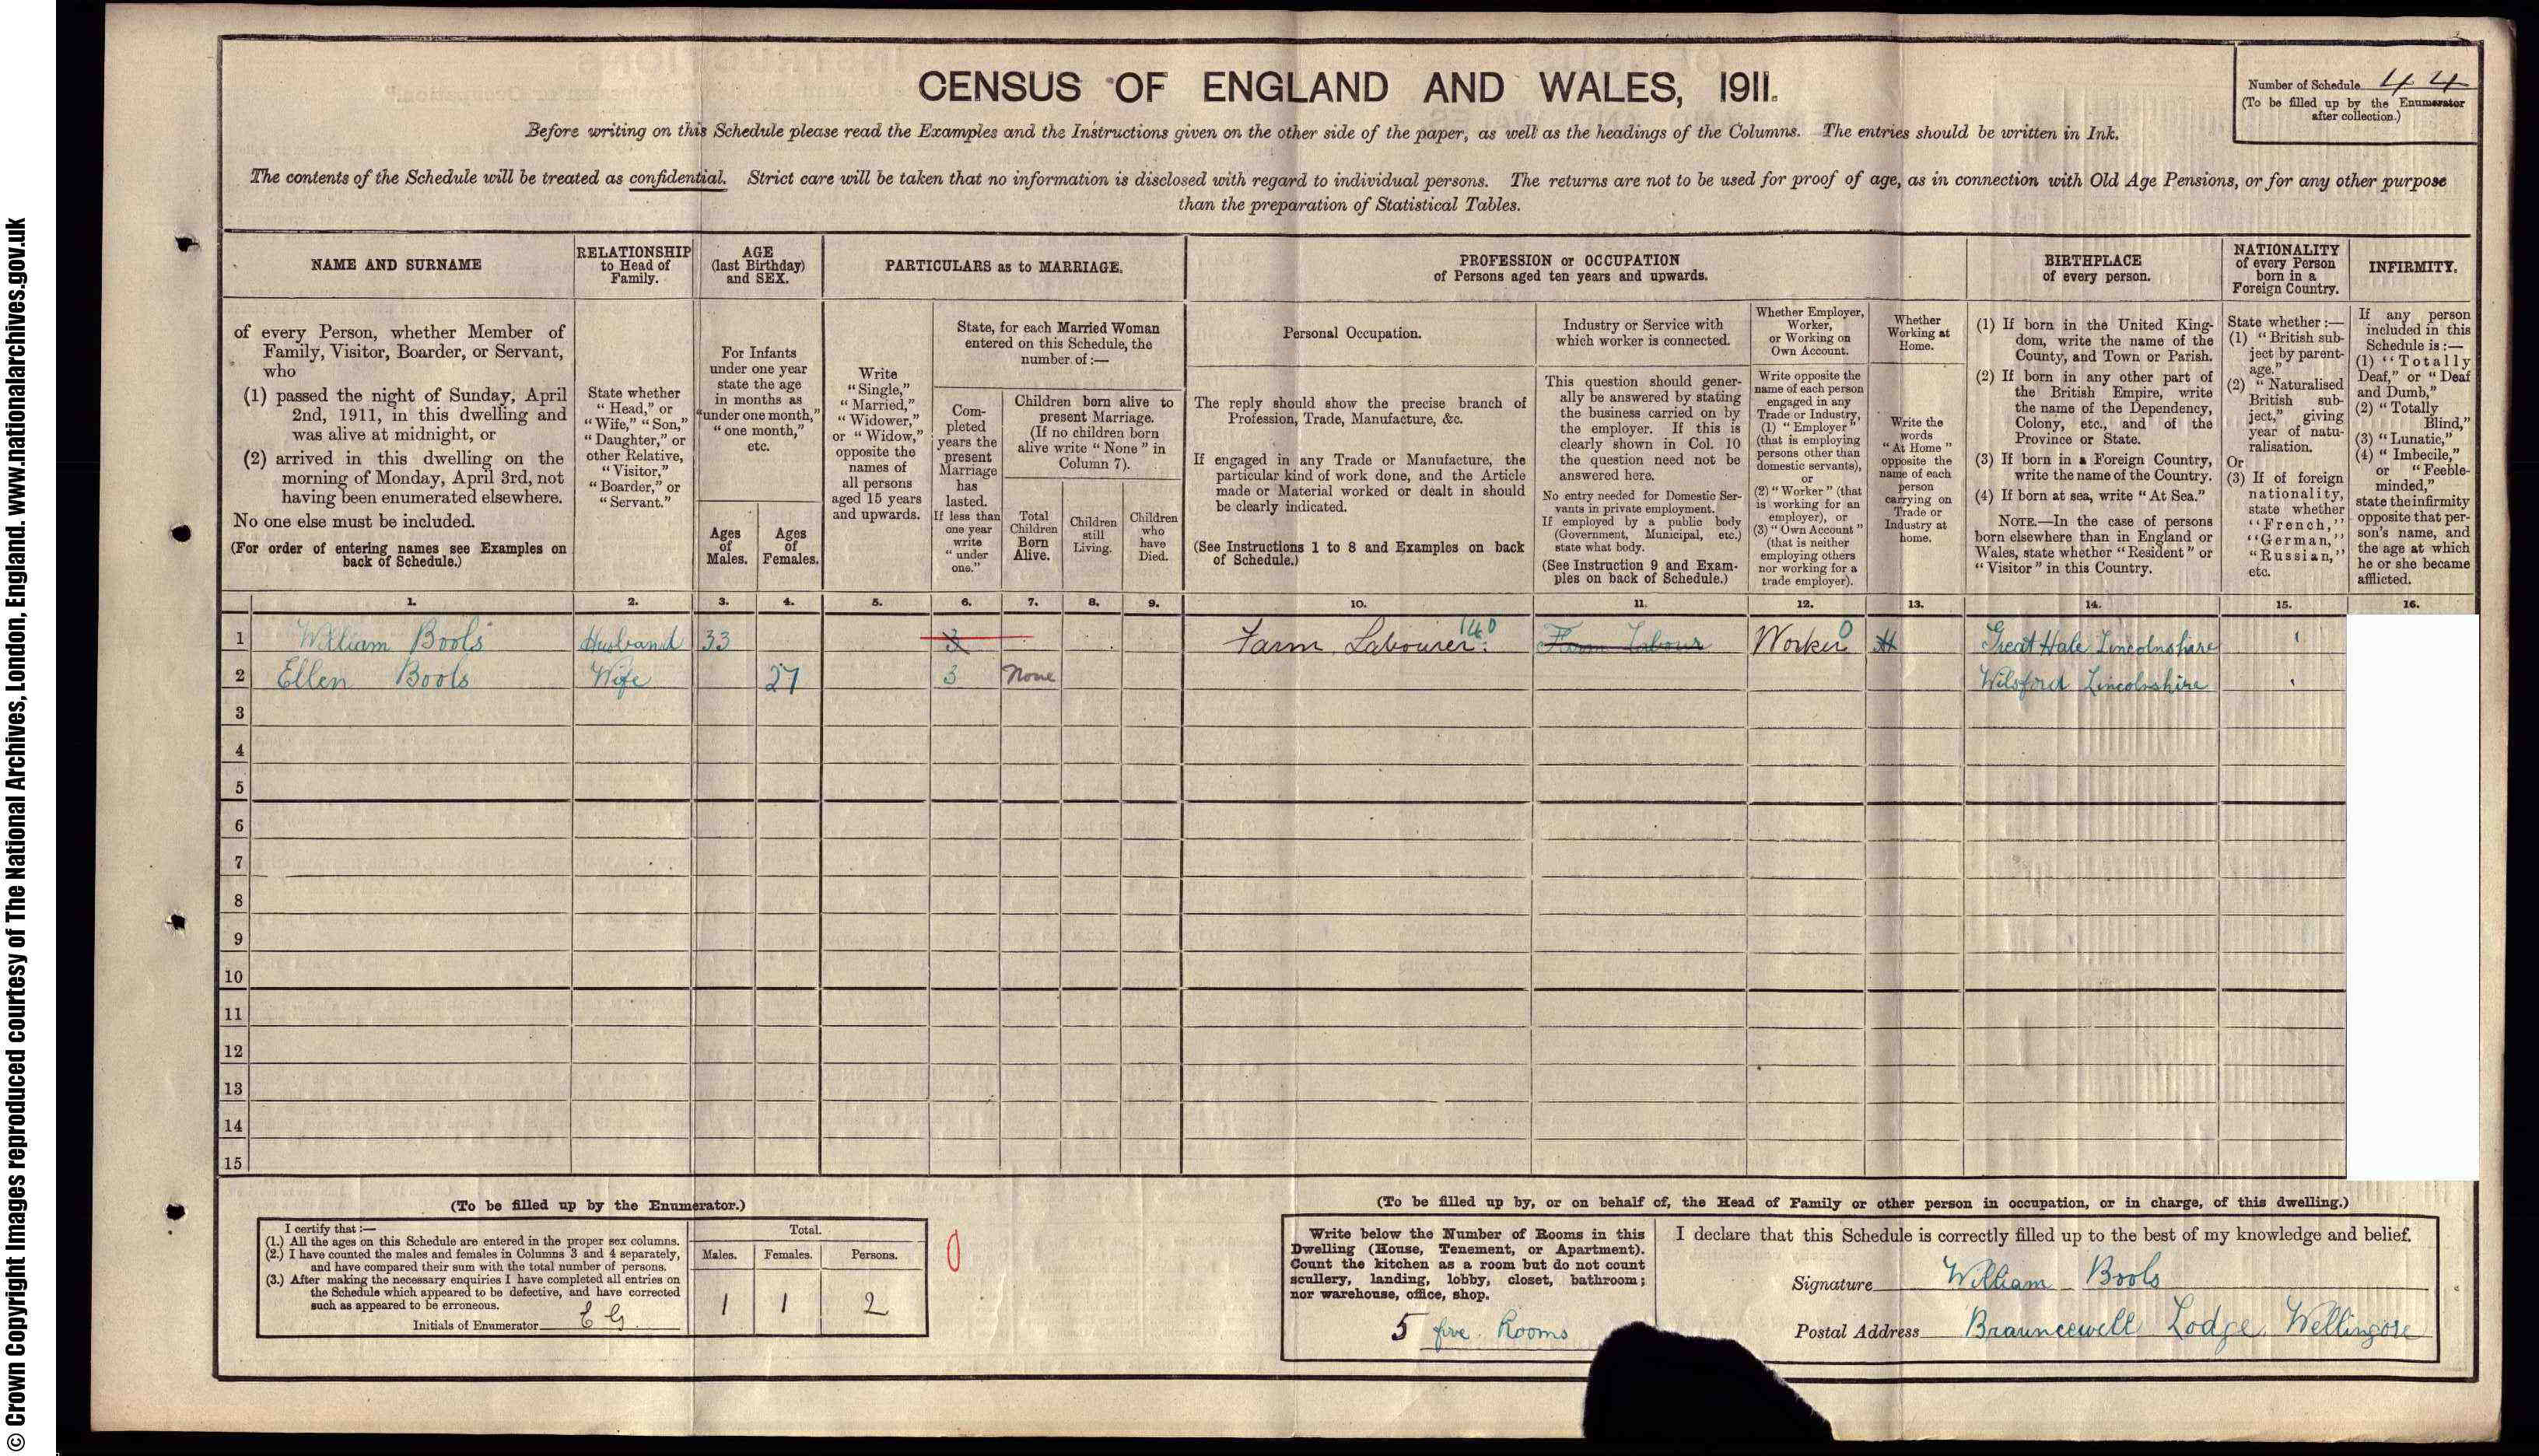 CENSUS OF ENGLAND AND WALES, 1911.
Number of Schedule 44
(To be filled up by the Enumerator
after collection.)
Before writing on this Schedule please read the Examples and the Instructions given on the other side of the paper, as well as the headings of the Columns. The entries should be written in Ink.
The contents of the Schedule will be treated as confidential. Strict care will be taken that no information is disclosed with regard to individual persons. The returns are not to be used for proof of age, as in connection with Old Age Pensions, or for any other purpose
than the preparation of Statistical Tables.
NAME AND SURNAME
of every Person, whether Member of
Family, Visitor, Boarder, or Servant,
who
(1) passed the night of Sunday, April
2nd, 1911, in this dwelling and
was alive at midnight, or
(2) arrived in this dwelling on the
morning of Monday, April 3rd, not
having been enumerated elsewhere.
No one else must be included.
(For order of entering names see Examples on
back of Schedule.)
RELATIONSHIP
to Head of
Family.
State whether
"Head," or
"Wife," "Son,"
"Daughter," or
other Relative,
"Visitor,"
"Boarder," or
"Servant."
AGE
(last Birthday)
and SEX.
For Infants
under one year
state the age
in months as
"under one month,"
"one month,"
etc.
Ages
of
Males.
Ages
of
Females.
PARTICULARS as to MARRIAGE.
Write
"Single,"
"Married,"
"Widower,"
or "Widow,"
opposite the
names of
all persons
aged 15 years
and upwards.
State, for each Married Woman
entered on this Schedule, the
number of:—
Com-
pleted
years the
present
Marriage
has
lasted.
If less than
one year
write
"under
one."
Children born alive to
present Marriage.
(If no children born
alive write "None" in
Column 7).
Total
Children
Born
Alive.
Children
still
Living.
Children
who
have
Died.
PROFESSION or OCCUPATION
of Persons aged ten years and upwards.
Personal Occupation.
The reply should show the precise branch of
Profession, Trade, Manufacture, &c.
If engaged in any Trade or Manufacture, the
particular kind of work done, and the Article
made or Material worked or dealt in should
be clearly indicated.
(See Instructions 1 to 8 and Examples on back
of Schedule.)
Industry or Service with
which worker is connected.
This question should gener-
ally be answered by stating
the business carried on by
the employer. If this is
clearly shown in Col. 10
the question need not be
answered here.
No entry needed for Domestic Ser-
vants in private employment.
If employed by a public body
(Government, Municipal, etc.)
state what body.
(See Instruction 9 and Exam-
ples on back of Schedule.)
Whether Employer,
Worker,
or Working on
Own Account.
Write opposite the
name of each person
engaged in any
Trade or Industry,
(1) "Employer"
(that is employing
persons other than
domestic servants),
or
(2) "Worker" (that
is working for an
employer), or
(3) "Own Account"
(that is neither
employing others
nor working for a
trade employer).
Whether
Working at
Home.
Write the
words
"At Home"
opposite the
name of each
person
carrying on
Trade or
Industry at
home.
BIRTHPLACE
of every person.
(1) If born in the United King-
dom, write the name of the
County, and Town or Parish.
(2) If born in any other part of
the British Empire, write
the name of the Dependency,
Colony, etc., and of the
Province or State.
(3) If born in a Foreign Country,
write the name of the Country.
(4) If born at sea, write "At Sea."
NOTE.—In the case of persons
born elsewhere than in England or
Wales, state whether "Resident" or
"Visitor" in this Country.
NATIONALITY
of every Person
born in a
Foreign Country.
State whether:—
(1) "British sub-
ject by parent-
age."
(2) "Naturalised
British sub-
ject," giving
year of natu-
ralisation.
Or
(3) If of foreign
nationality,
state whether
"French,"
"German,"
"Russian,"
etc.
INFIRMITY.
If any person
included in this
Schedule is:—
(1) "Totally
Deaf," or "Deaf
and Dumb,"
(2) "Totally
Blind,"
(3) "Lunatic,"
(4) "Imbecile,"
or "Feeble-
minded,"
state the infirmity
opposite that per-
son's name, and
the age at which
he or she became
afflicted.
1. 2. 3. 4. 5. 6. 7. 8. 9. 10. 11. 12. 13. 14. 15. 16.
1 William Bools Husband 33 3 Farm Labourer 140 Farm Labour Worker 0 Great Hale Lincolnshire
2 Ellen Bools Wife 27 3 None Wilsford Lincolnshire
3
4
5
6
7
8
9
10
11
12
13
14
15
(To be filled up by the Enumerator.)
I certify that:—
(1.) All the ages on this Schedule are entered in the proper sex columns.
(2.) I have counted the males and females in Columns 3 and 4 separately,
and have compared their sum with the total number of persons.
(3.) After making the necessary enquiries I have completed all entries on
the Schedule which appeared to be defective, and have corrected
such as appeared to be erroneous.
Initials of Enumerator E G
Total.
Males. Females. Persons.
1 1 2
0
(To be filled up by, or on behalf of, the Head of Family or other person in occupation, or in charge, of this dwelling.)
Write below the Number of Rooms in this
Dwelling (House, Tenement, or Apartment).
Count the kitchen as a room but do not count
scullery, landing, lobby, closet, bathroom;
nor warehouse, office, shop.
5 five Rooms
I declare that this Schedule is correctly filled up to the best of my knowledge and belief.
Signature William Bools
Postal Address Brauncewell Lodge Wellingore
© Crown Copyright Images reproduced courtesy of The National Archives, London, England. www.nationalarchives.gov.uk